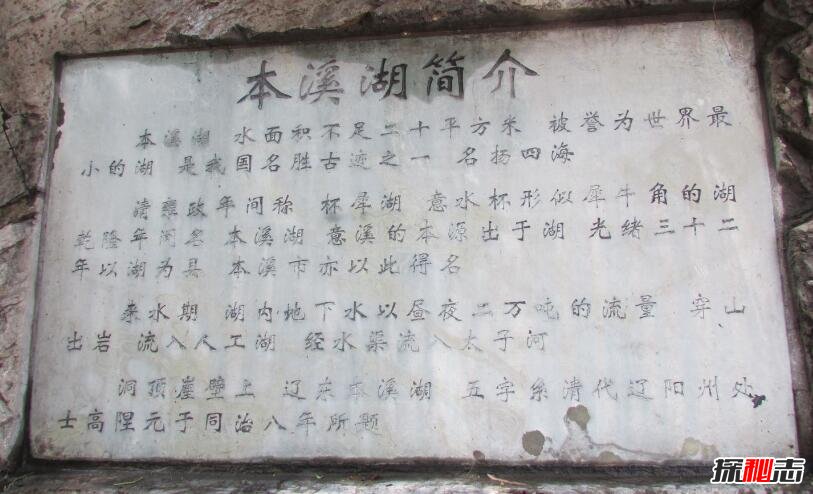 本溪湖简介
本溪湖 水面积不足二十平方米 被誉为世界最
小的湖 是我国名胜古迹之一 名扬四海
清雍政年间称 杯犀湖 意水杯形似犀牛角的湖
乾隆年间名 本溪湖 意溪的本源出于湖 光绪三十二
年以湖为县 本溪市亦以此得名
来水期 湖内地下水以昼夜二万吨的流量 穿山
出岩 流入人工湖 经水渠流入太子河
洞顶崖壁上 辽东本溪湖 五字系清代辽阳州处
士高陞元于同治八年所题
探秘志